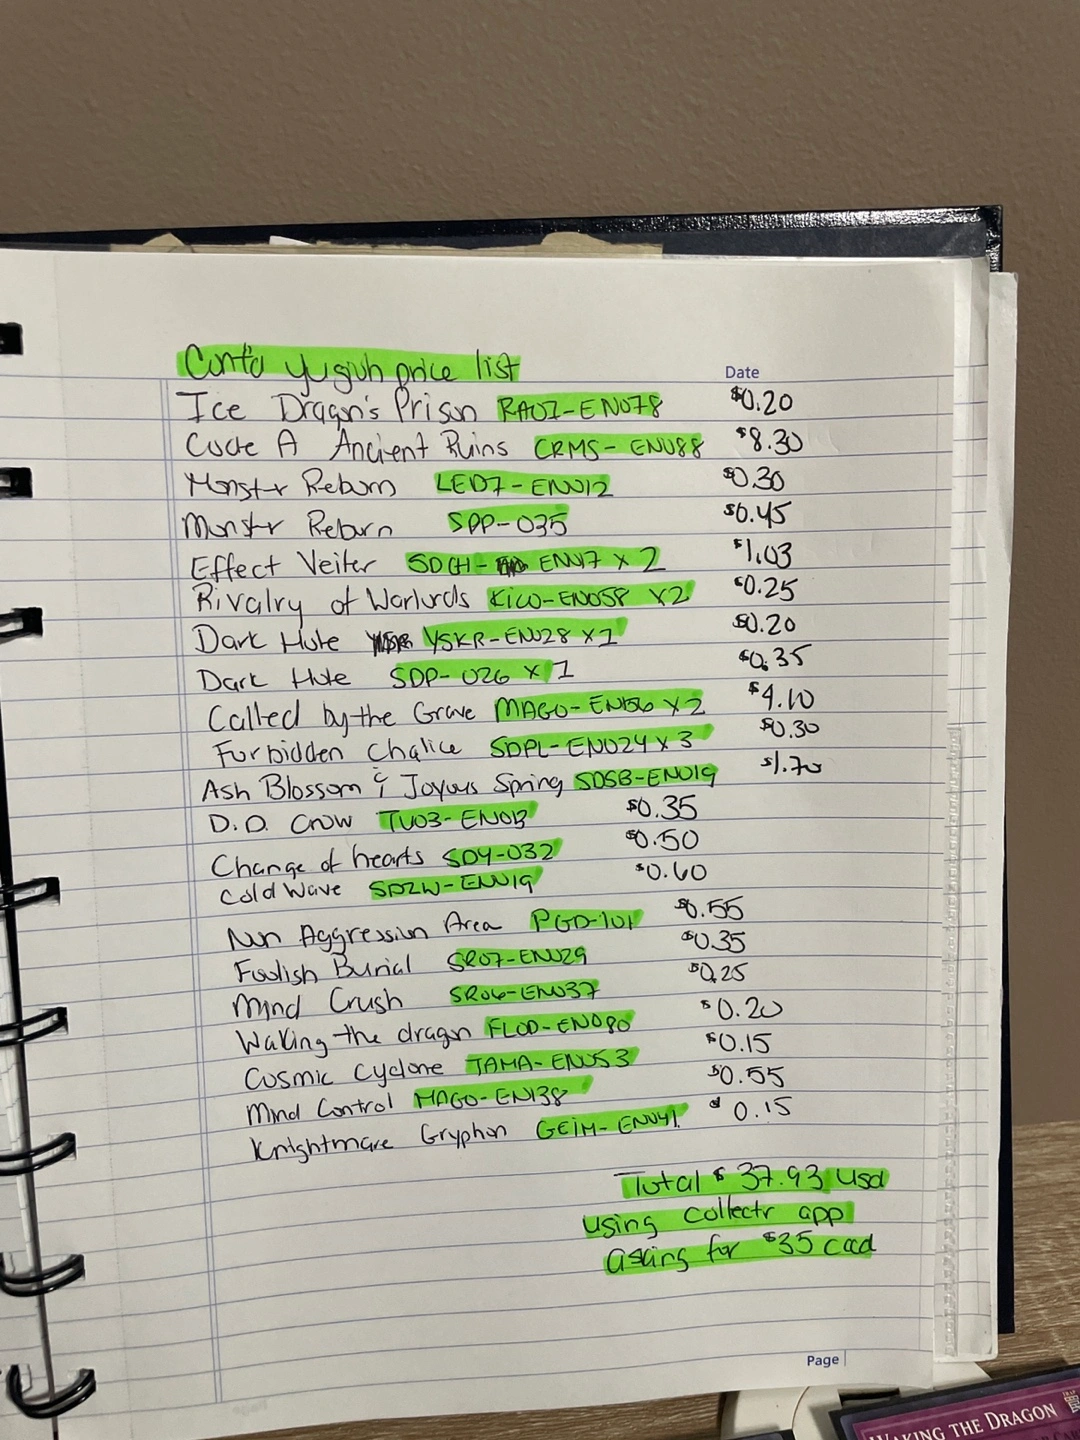 Cont'd yugioh price list
Date
Ice Dragon's Prison RA01-EN078 $0.20
Code A Ancient Ruins CRMS-EN088 $8.30
Monster Reborn LED7-EN012 $0.30
Monster Reborn SPP-035 $0.45
Effect Veiler SDCH-EN017 x 2 $1.03
Rivalry of Warlords KICO-EN058 x2 $0.25
Dark Hole YSKR-EN028 x1 $0.20
Dark Hole SDP-026 x 1 $0.35
Called by the Grave MAGO-EN156 x 2 $4.10
Forbidden Chalice SDPL-EN024 x 3 $0.30
Ash Blossom & Joyous Spring SDSB-EN019 $1.70
D.D. Crow TU03-EN013 $0.35
Change of hearts SDY-032 $0.50
Cold Wave SDZW-EN019 $0.60
Non Aggression Area PGD-101 $0.55
Foolish Burial SR07-EN029 $0.35
Mind Crush SR06-EN037 $0.25
Waking the dragon FLOD-EN080 $0.20
Cosmic Cyclone TAMA-EN053 $0.15
Mind Control MAGO-EN138 $0.55
Knightmare Gryphon GEIM-EN041 $0.15
Total $37.93 usd
using collectr app
asking for $35 cad
Page
WAKING THE DRAGON